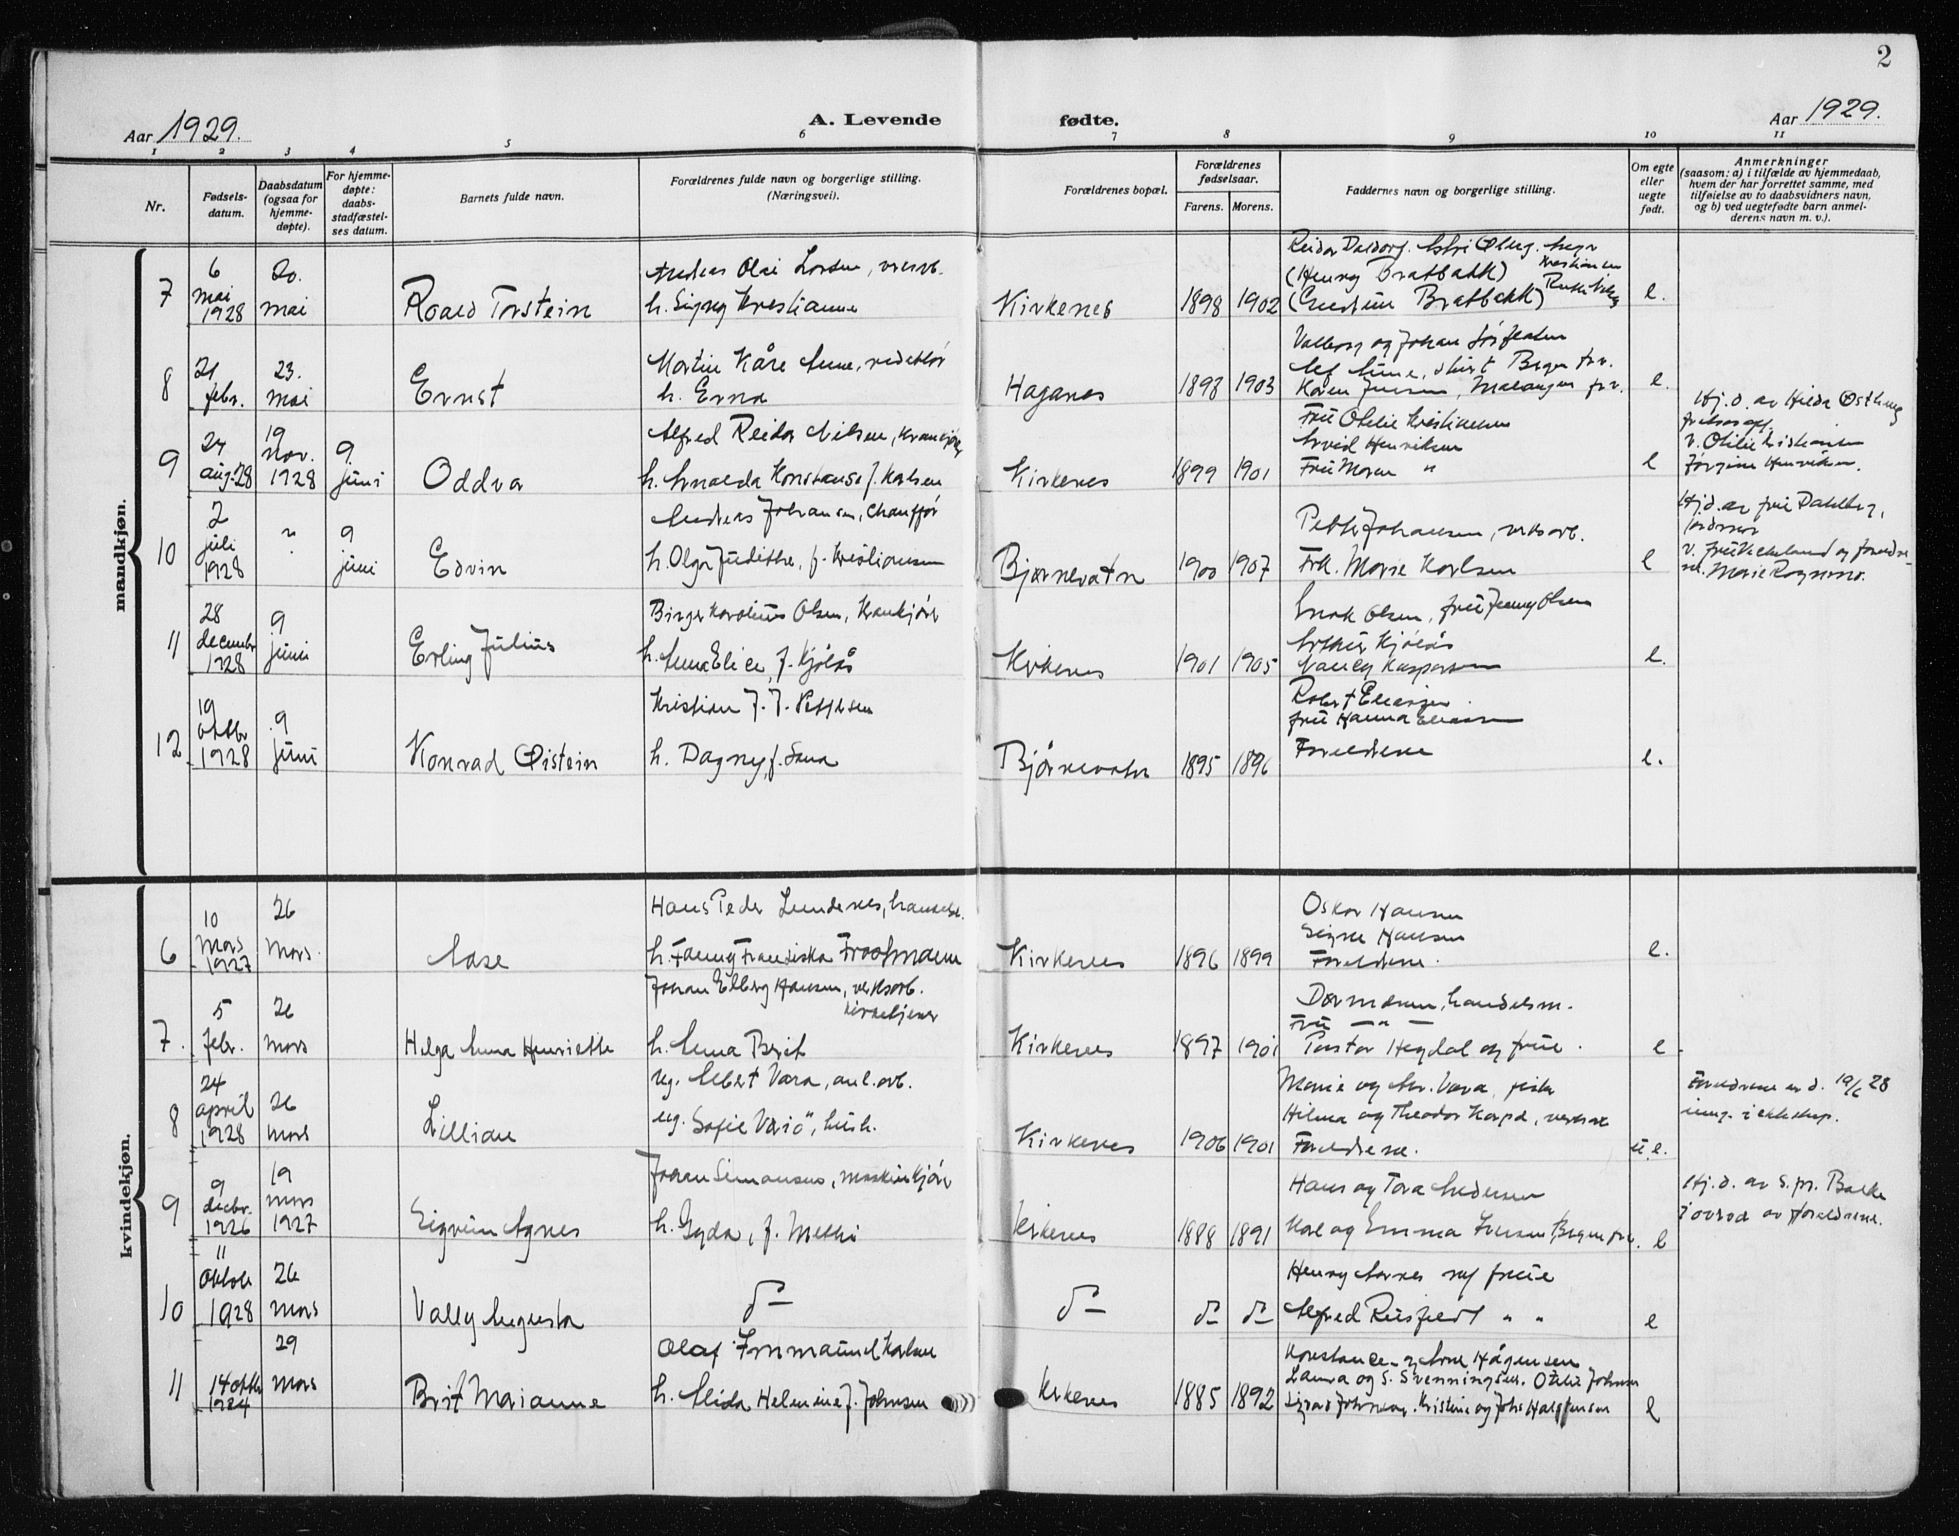 2
Aar 1929.
A. Levende fødte.
Aar 1929.
1 2 3 4 5 6 7 8 9 10 11
Nr.
Fødsels-
datum.
Daabsdatum
(ogsaa for
hjemme-
døpte).
For hjemme-
døpte:
daabs-
stadfæstel-
ses datum.
Barnets fulde navn.
Forældrenes fulde navn og borgerlige stilling.
(Næringsvei).
Forældrenes bopæl.
Forældrenes
fødselsaar.
Farens. Morens.
Faddernes navn og borgerlige stilling.
Om egte
eller
uegte
født.
Anmerkninger
(saasom: a) i tilfælde av hjemmedaab,
hvem der har forrettet samme, med
tilføielse av to daabsvidners navn,
og b) ved uegtefødte barn anmel-
derens navn m. v.).
mandkjøn.
7
6
mai
1928
20.
mai
Roald Torstein
Andreas Olai Larsen,
h. Signy Kristianne
Kirkenes
1898 1902
(Henry Bratbakk)
Bratbakk)
e.
8
21
febr.
23.
mai
Ernst
Martin Kåre Aune, redaktør
h. Erna
Haganes
1898 1903
Valborg og Johan
Karen Iversen, Malangen frr.
e.
9
24
aug. 28
19
nov.
1928
9
juni
Oddvar
Alfred Reidar Nilsen,
h. Arnalda Konstanse f. Karlsen
Kirkenes
1899 1901
Fru Otelie Kristiansen
Arvid Henriksen
Fru Maren "
e
Hj. d. av Hilda
v. Otilie Kristiansen
Jørgine Henriksen.
10
2
juli
1928
"
9
juni
Edvin
Andreas Johansen, chauffør
h. Olga Judithe, f. Kristiansen
Bjørnevatn
1900 1907
Petter Johansen, verksarb.
Frk. Marie Karlsen
e
Hj. d. av fru Dahlberg,
jordmor
11
28
decembr
1928
9
juni
Erling Julius
Birger Karolius Olsen, krankjører
h. Anna Elise, f. Kjølås
Kirkenes
1901 1905
Olsen, fru Jenny Olsen
Arthur Kjølås
Nancy Kaspersen
e.
12
19
oktbr
1928
9
juni
Konrad Øistein
Kristian J. J. Pettersen
h. Dagny, f. Sana
Bjørnevatn
1895 1896
fru Hanna Eliassen
Foreldrene
e.
kvindekjøn.
6
10
mars
1927
26
mars.
Aase
Hans Peder Lundenes,
h. Fanny Franciska
Kirkenes
1896 1899
Oskar Hansen
Signe Hansen
Foreldrene.
e.
7.
5
febr.
26
mars
Helga Anna Henriette
Johan Elberg Hansen, verksarb.
kirketjener
h. Anna Berit
Kirkenes
1897 1901
handelsm.
Fru — " —
Pastor Hegdal og frue.
e.
8
24
april
1928
26
mars
Lillian
ug. Albert Vara, anl. arb.
ug. Sofie Variö, hush.
Kirkenes
1906 1901
Marie og Vara, fisker
Hilma og Theodor Karpa,
Foreldrene.
u. e.
Foreldrene er d. 19/6 28
inng. i ekteskap.
9
9
decbr.
1926
19
mars
1927
Sigrun Agnes
Johan Simonsen, maskinkjører
h. Gyda, f. Methi
Kirkenes
1888 1891
Hans og Tora Andersen
Karl og Emma Iversen,
e
Hj. d. av s. pr. Balke
i overvær av foreldrene.
10
11
oktob
1928
26
mars
Vally Augusta
do
do
do do
Henry Aarnes og frue
Alfred Ruisfeldt " "
e
11
14 oktbr
1924
29
mars
Brit Marianne
Olaf Immanuel Karlsen
h. Alida Helmine f. Johnsen
Kirkenes
1885 1892
Konstance og Arne Hågensen
Laura og S. Svenningsen. Otilie Johnsen
Kristine og Johs Halvorsen
e